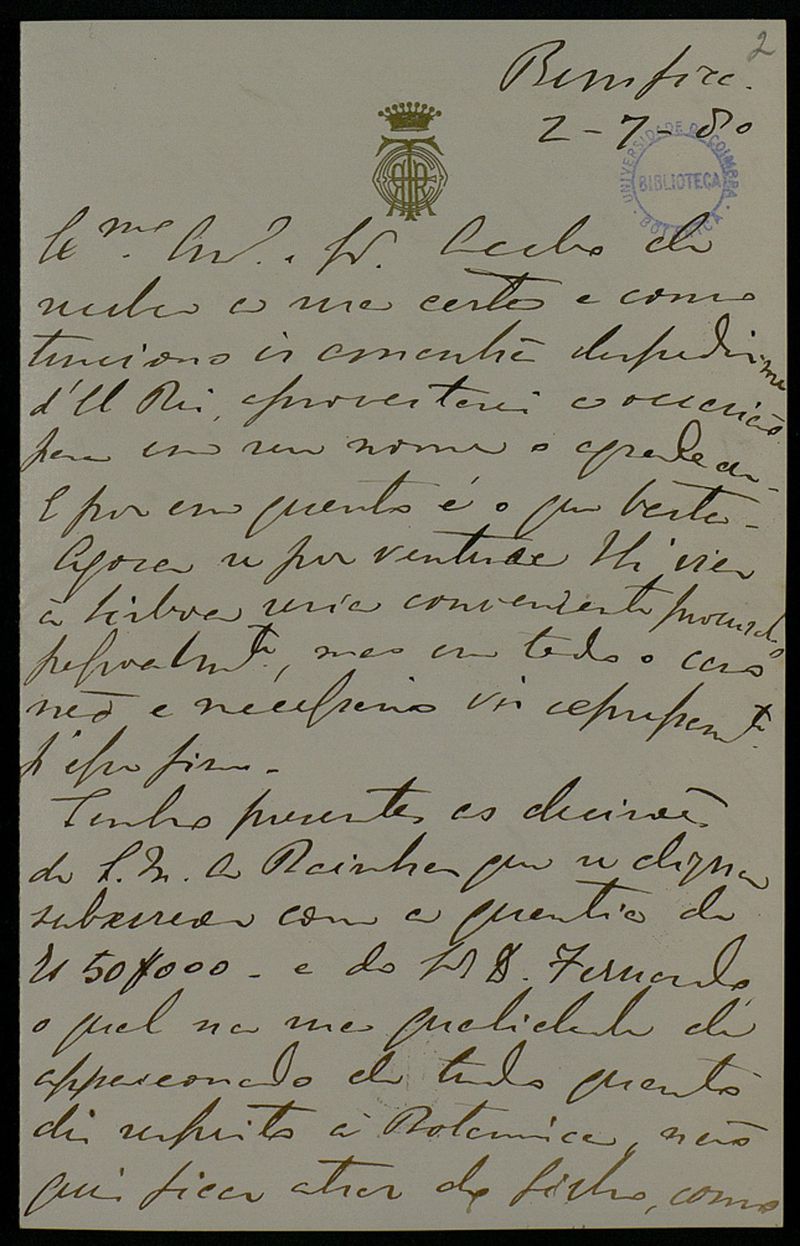 2
Bemfica.
2-7-80
UNIVERSIDADE DE COIMBRA
BIBLIOTECA
BOTANICA
Exmo. Am.º e Sr. Acabo de
receber a sua carta e como
tenciono ir amanhã despedir-me
d'El Rei, aproveitarei a occasião
para em seu nome o agradecer.
E por em quanto é o que basta.
Agora se por ventura El Rei vier
a Lisboa seria conveniente procural-o
pessoalmte, mas em todo o caso
não é necessario vir expressamte
p'a esse fim.
Tenho presentes as decisões
de S. M. a Rainha que se digna
subscrever com a quantia de
Rs 50$000 - e do Sr D. Fernando,
o qual na sua qualidade de
appaixonado de tudo quanto
diz respeito á Botanica, não
quiz ficar atraz do filho, como